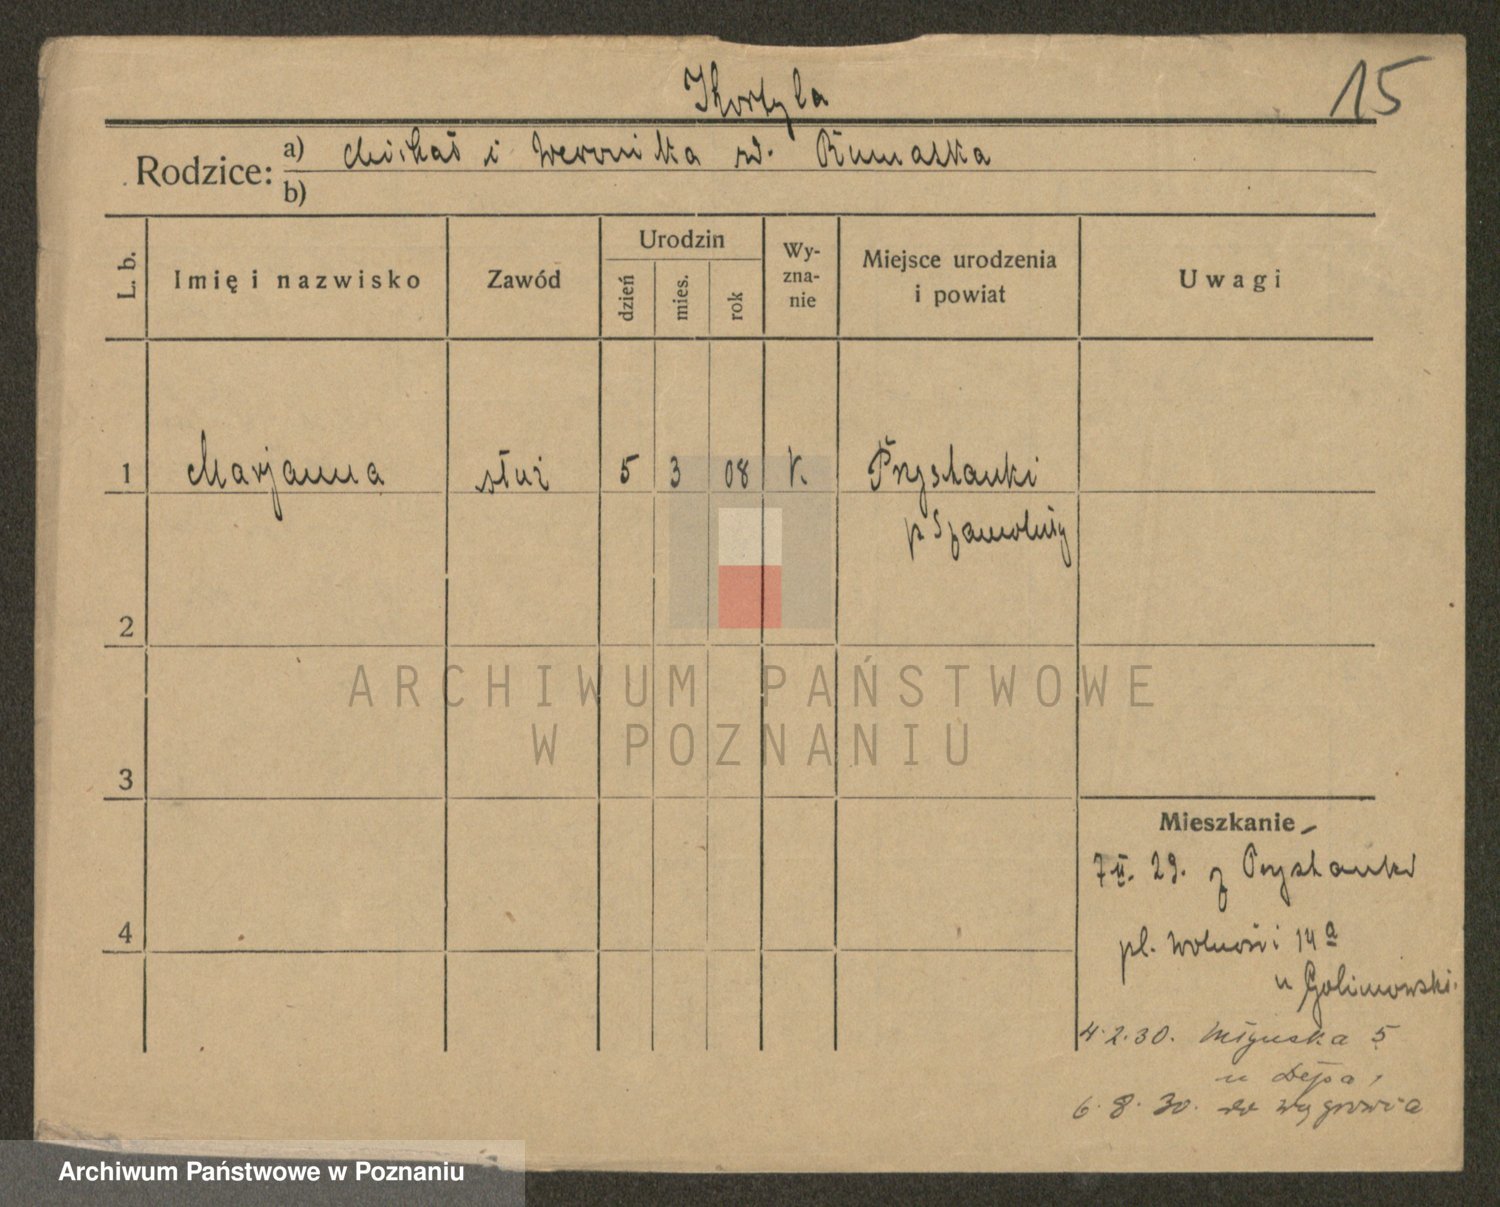 15
Rodzice: a) Michał i Weronika rd.
b)
L. b. Imię i nazwisko Zawód Urodzin dzień mies. rok Wy-zna-nie Miejsce urodzenia i powiat Uwagi
1 Marjanna służ 5 3 08 k. Przystanki
p Szamotuły
2
ARCHIWUM PAŃSTWOWE
W POZNANIU
3
Mieszkanie
7 II. 29. z Przystanki
4
pl. Wolności 14 a
u Golimowski.
4.2.30. Młyńska 5
u
6.8.30. do Wągrowca
Archiwum Państwowe w Poznaniu